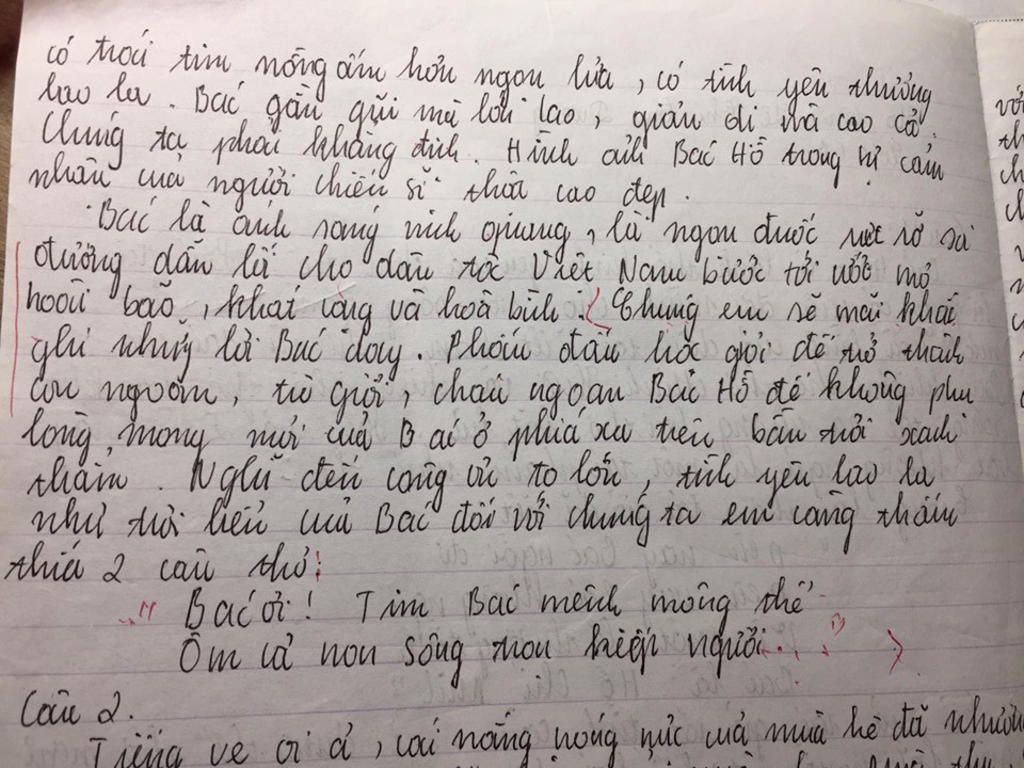 có trái tim nồng ấm hơn ngọn lửa, có tình yêu thương
bao la. Bác gần gũi mà lớn lao, giản dị mà cao cả.
Chúng ta phải khẳng định. Hình ảnh Bác Hồ trong sự cảm
nhận của người chiến sĩ thật cao đẹp.
Bác là ánh sáng vinh quang, là ngọn đuốc rực rỡ soi
đường dẫn lối cho dân tộc Việt Nam bước tới ước mơ
hoài bão, khát vọng và hoà bình. Chúng em sẽ mãi khắc
ghi những lời Bác dạy. Phấn đấu học giỏi để trở thành
con ngoan, trò giỏi, cháu ngoan Bác Hồ để không phụ
lòng mong mỏi của Bác ở phía xa trên bầu trời xanh
thẳm. Nghĩ đến công ơn to lớn, tình yêu bao la
như trời biển của Bác đối với chúng ta em càng thấm
thía 2 câu thơ:
" Bác ơi! Tim Bác mênh mông thế
Ôm cả non sông trọn kiếp người..."
Câu 2.
Tiếng ve oi ả, cái nắng nóng nực của mùa hè đã nhường